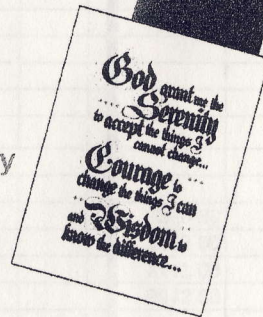 God grant me the
Serenity
to accept the things I
cannot change...
Courage to
change the things I can
and Wisdom to
know the difference...
y